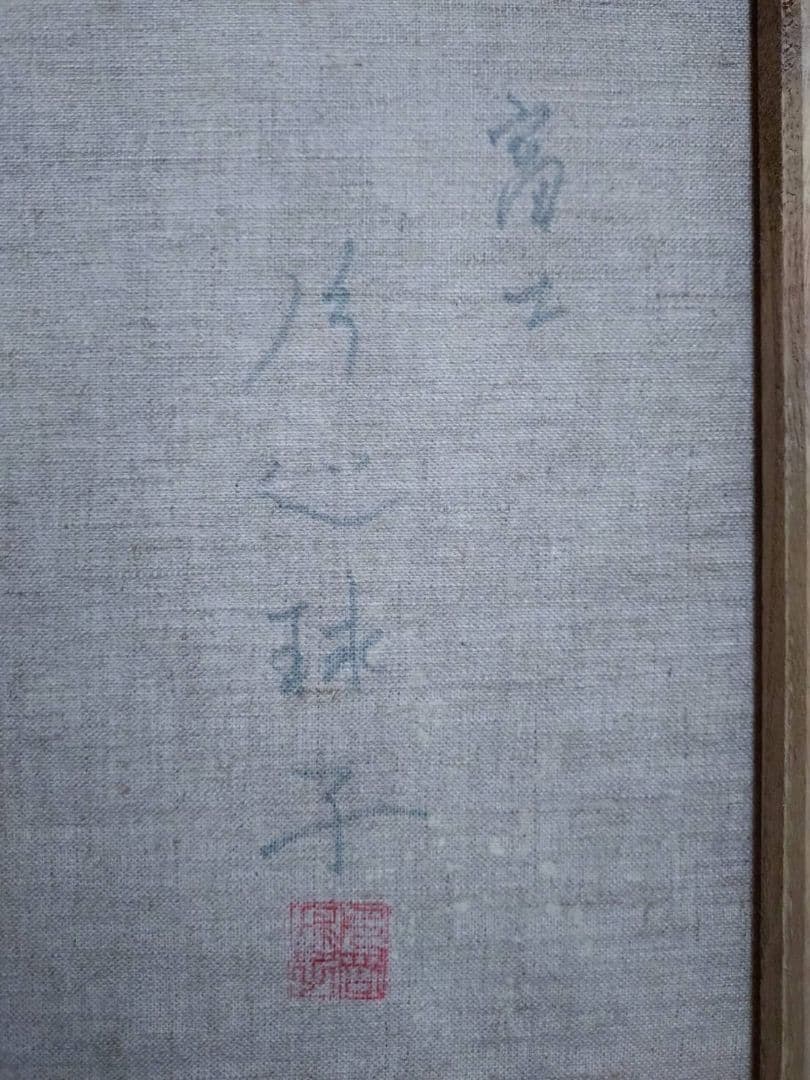 富士
片岡球子